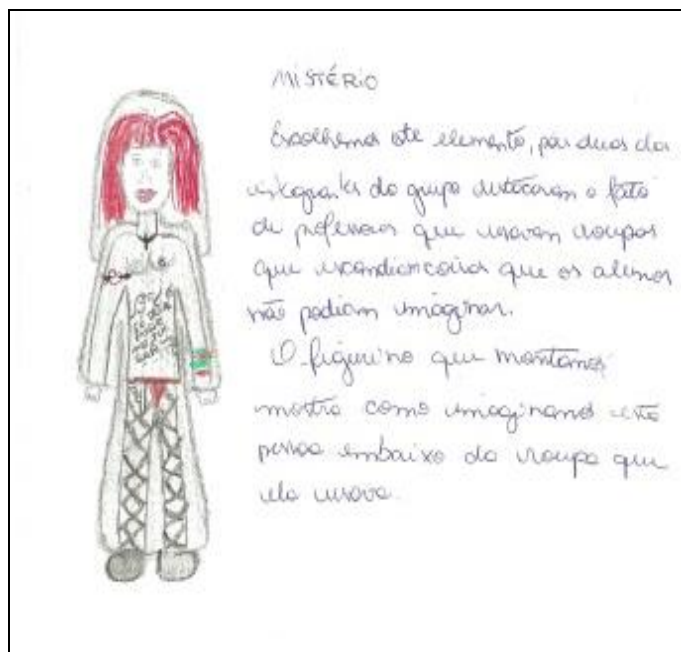 MISTÉRIO
Escolhemos este elemento, pois duas das
integrantes do grupo destacaram o fato
de professores que usavam roupas
que escondiam coisas que os alunos
não podiam imaginar.
O figurino que montamos
mostra como imaginamos esta
pessoa embaixo da roupa que
ela usava.